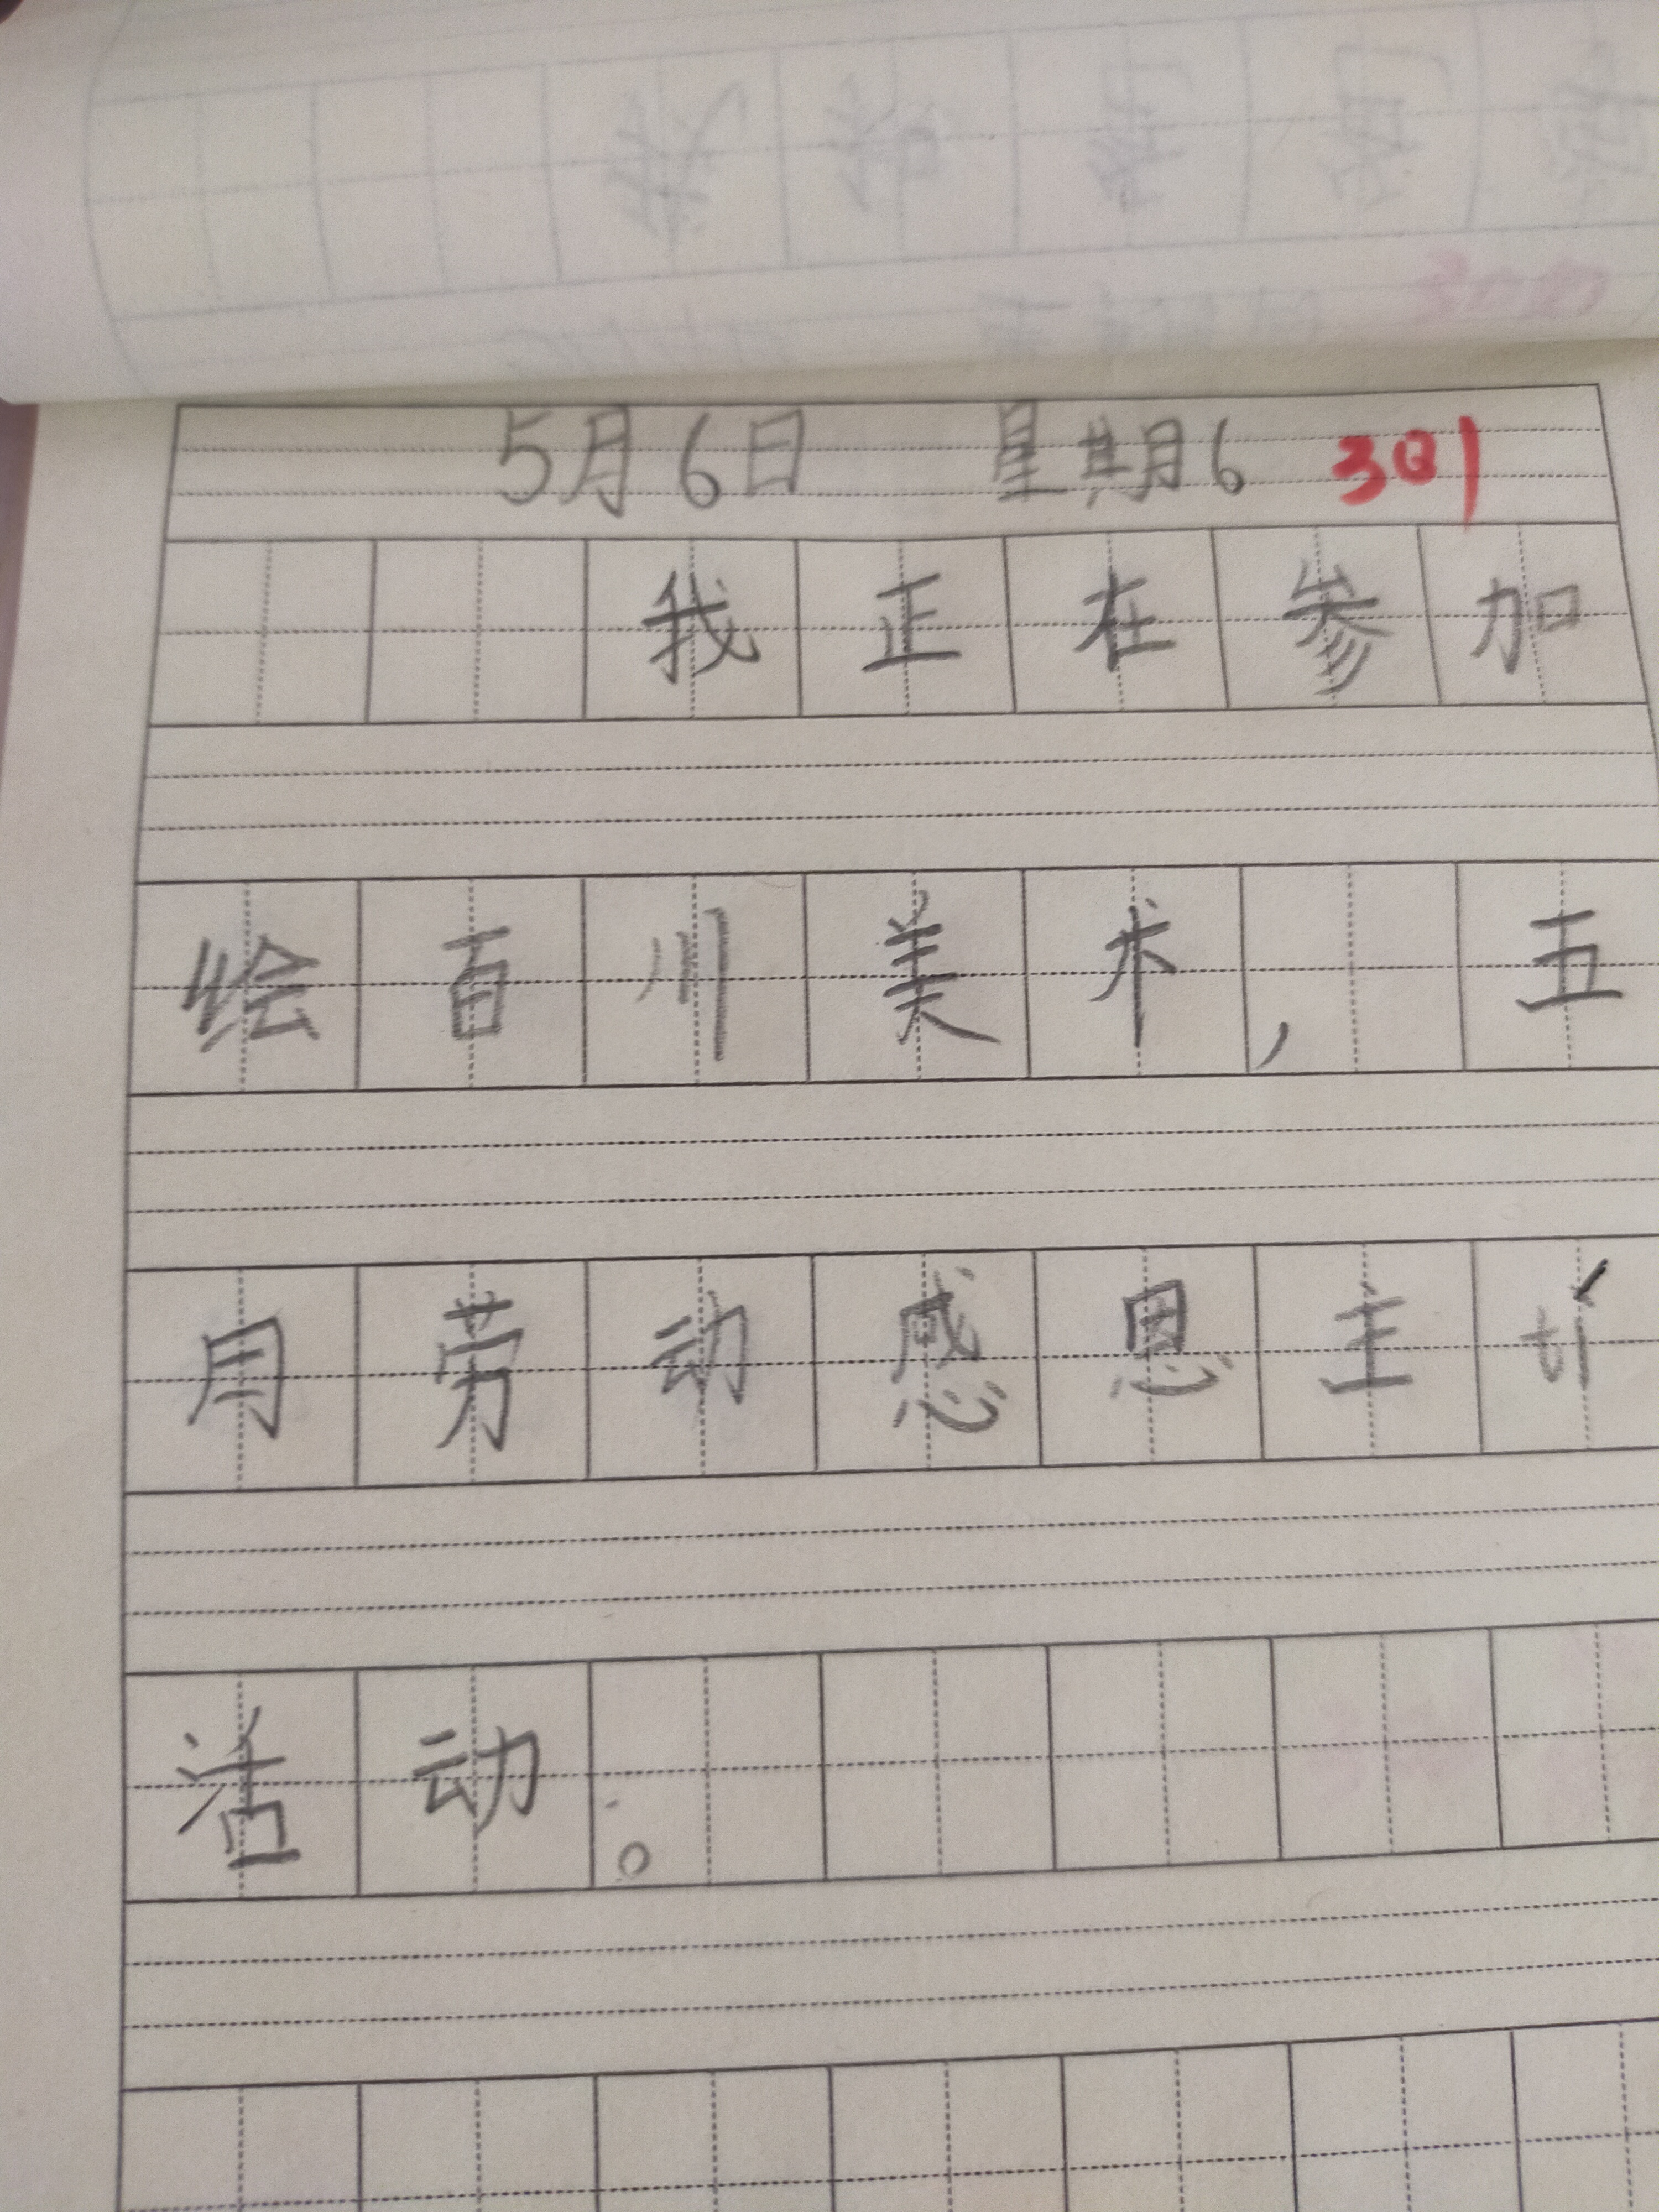 5月6日 星期6 301
我正在参加
绘百川美术,五
月劳动感恩主
活动。